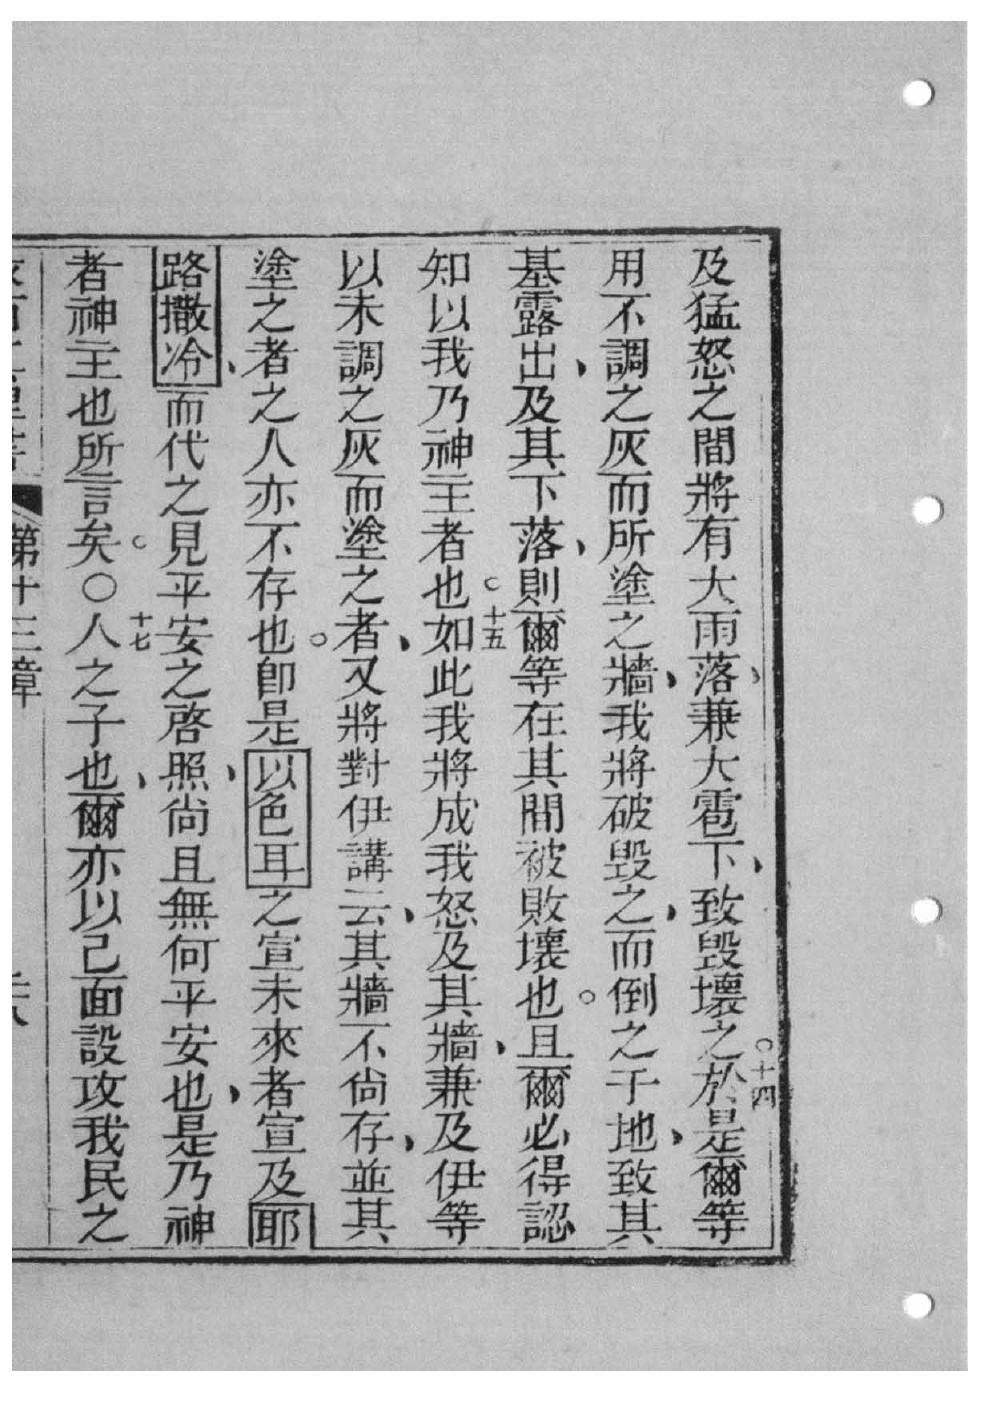 及猛怒之間將有大雨落、兼大雹下、致毀壞之。十四於是爾等
用不調之灰而所塗之牆、我將破毀之、而倒之于地、致其
基露出、及其下落、則爾等在其間被敗壞也。且爾必得認
知以我乃神主者也。十五如此我將成我怒及其牆、兼及伊等
以未調之灰而塗之者、又將對伊講云、其牆不尚存、並其
塗之者、之人亦不存也。即是以色耳之宣未來者宣及耶
路撒冷而代之見平安之啓照、尚且無何平安也、是乃神
者神主也所言矣。〇十七人之子也、爾亦以己面設攻我民之
第十三章